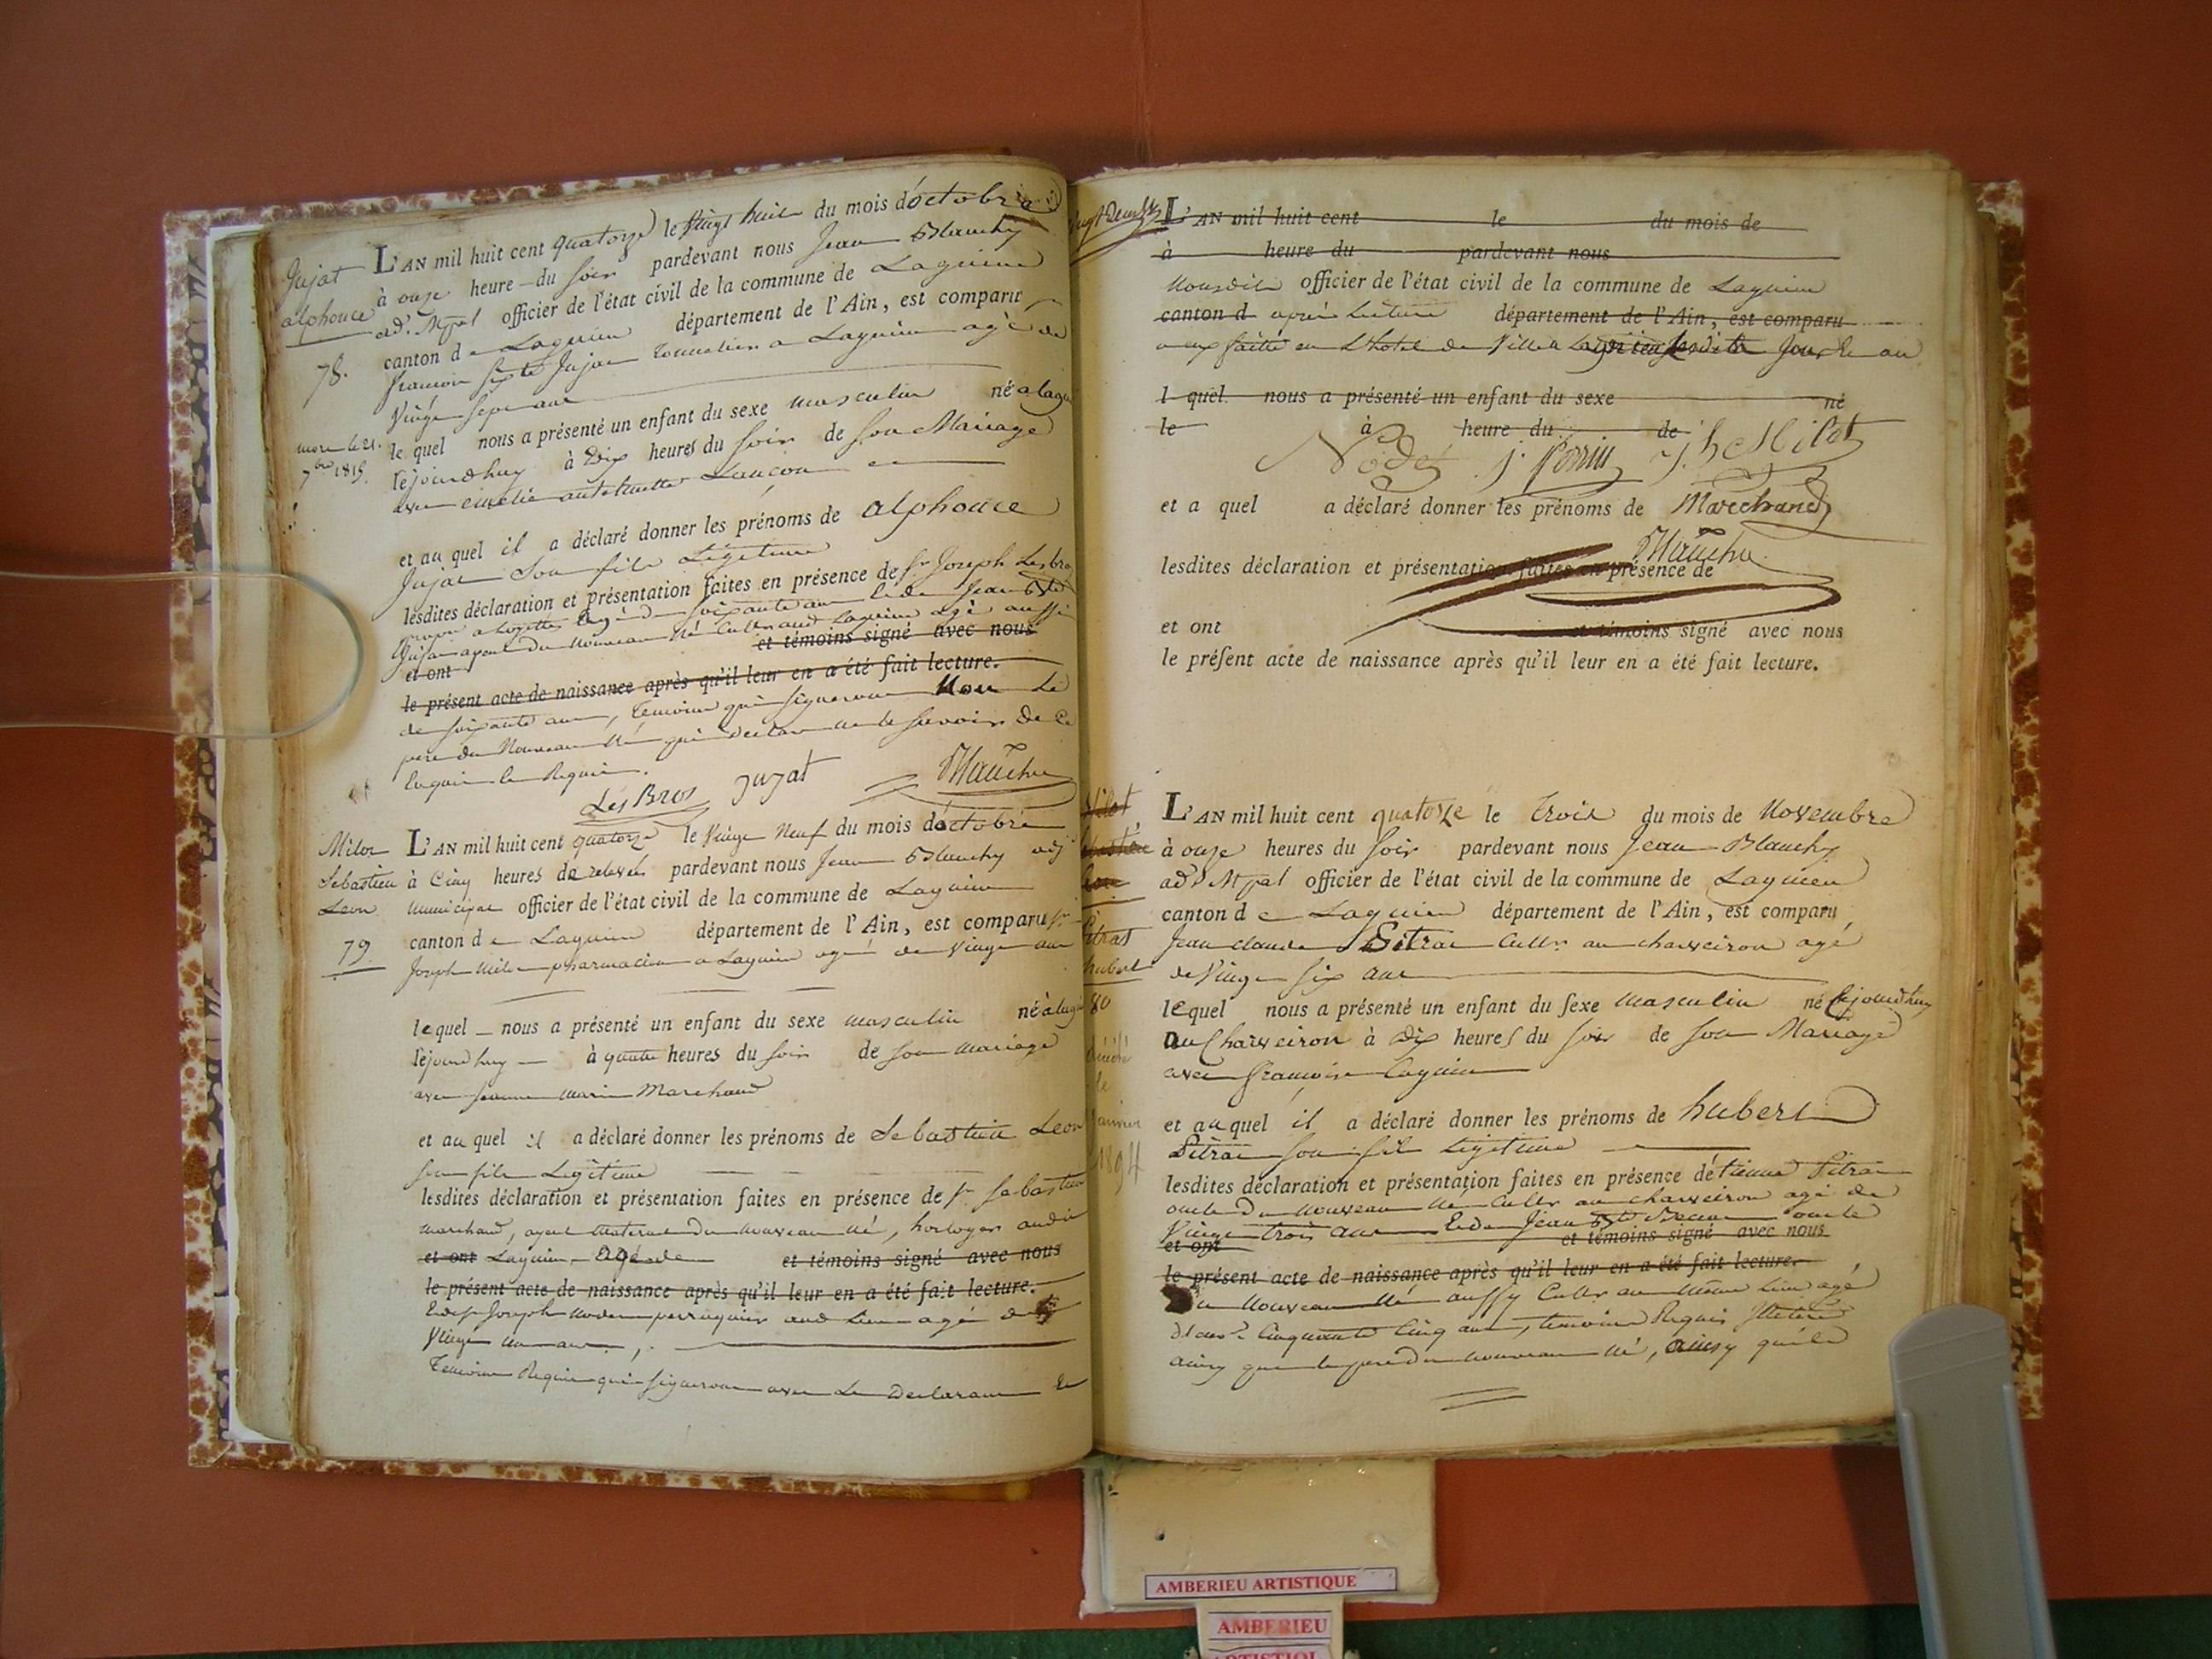 Jujat
alphonce
78.
more le 21.
7bre 1815.
L'AN mil huit cent quatorze le vingt huit du mois d'octobre
à onze heure du soir pardevant nous Jean Blanchy
adt. Mpal officier de l'état civil de la commune de Lagnieu
canton de Lagnieu département de l'Ain, est comparu
Jujat tonnelier a Lagnieu agé de
vingt sept ans
le quel nous a présenté un enfant du sexe masculin né a lagn
lejourdhuy à dix heures du soir de son Mariage
avec antoinette
et au quel il a déclaré donner les prénoms de alphonce
Jujat son fils Légitime
lesdites déclaration et présentation faites en présence de sr Joseph Lesbros
agé de soixante ans et de Jean Bte
Jujat ayeul du nouveau né Cultr audt Lagnieu agé aussi
et ont et témoins signé avec nous
le présent acte de naissance après qu'il leur en a été fait lecture.
de soixante ans, temoins qui signeront Non le
pere du Nouveau né qui declare ne le savoir de ce
Enquis le Requis.
Les Bros Jujat Blanchy
Milot
Sebastien
Leon
79.
L'AN mil huit cent quatorze le vingt Neuf du mois d'octobre
à Cinq heures de relevée pardevant nous Jean Blanchy adj
municipal officier de l'état civil de la commune de Lagnieu
canton de Lagnieu département de l'Ain, est comparu sr
Joseph Milot pharmacien a Lagnieu agé de vingt ans
lequel nous a présenté un enfant du sexe masculin né à lagn
lejourdhuy à quatre heures du soir de son mariage
avec Jeanne Marie Marchand
et au quel il a déclaré donner les prénoms de Sebastien Leon
son fils Légitime
lesdites déclaration et présentation faites en présence de sr Sebastien
marchand, ayeul Maternel du nouveau né, horloger audit
et ont Lagnieu agé de et témoins signé avec nous
le présent acte de naissance après qu'il leur en a été fait lecture.
et de sr Joseph Nodet perruquier aud Lieu agé de
vingt un ans,
Temoins Requis qui signeront avec le Declarant et
L'AN mil huit cent le du mois de
à heure du pardevant nous
Nousdit officier de l'état civil de la commune de Lagnieu
canton d après lecture département de l'Ain, est comparu
a eux faitte en L'hotel de Ville a Lagnieu Lesdits Jour et an
l quel nous a présenté un enfant du sexe né
le à heure du de
Nodet j. Perrin j. h Milot
et a quel a déclaré donner les prénoms de Marchand
Blanchy
lesdites déclaration et présentation faites en présence de
et ont et témoins signé avec nous
le présent acte de naissance après qu'il leur en a été fait lecture.
Milot
Sebastien
Leon
Pitrat
hubert
80
décédé
le
janvier
1894
L'AN mil huit cent quatorze le trois du mois de Novembre
à onze heures du soir pardevant nous Jean Blanchy
adt Mpal officier de l'état civil de la commune de Lagnieu
canton de Lagnieu département de l'Ain, est comparu
Jean claude Pitrat Cultr au charveiron agé
de vingt six ans
lequel nous a présenté un enfant du sexe masculin né lejourdhuy
au Charveiron à dix heures du soir de son Mariage
avec françoise
et au quel il a déclaré donner les prénoms de hubert
Pitrat son fils Légitime
lesdites déclaration et présentation faites en présence détienne Pitrat
oncle du nouveau né Cultr au charveiron agé de
vingt trois ans Et de Jean Bte oncle
et ont et témoins signé avec nous
le présent acte de naissance après qu'il leur en a été fait lecture.
du nouveau né aussy Cultr au même Lieu agé
Cinquante Cinq ans, temoins Requis
ainsy que le pere du nouveau né, ainsy quil
AMBERIEU ARTISTIQUE
AMBERIEU
ARTISTIQU